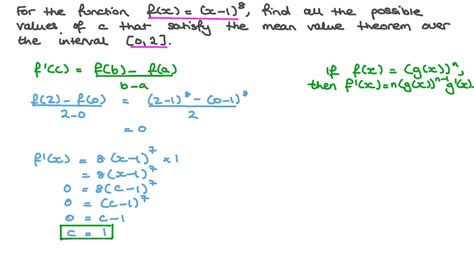 For the function f(x) = (x-1)⁸, find all the possible
values of c that satisfy the mean value theorem over
the interval [0,2].
f'(c) = f(b) - f(a) / b-a
if f(x) = (g(x))ⁿ,
then f'(x) = n(g(x))ⁿ⁻¹ g'(x).
f(2) - f(0) / 2-0 = (2-1)⁸ - (0-1)⁸ / 2
= 0
f'(x) = 8(x-1)⁷ × 1
= 8(x-1)⁷
0 = 8(c-1)⁷
0 = (c-1)⁷
0 = c-1
c = 1